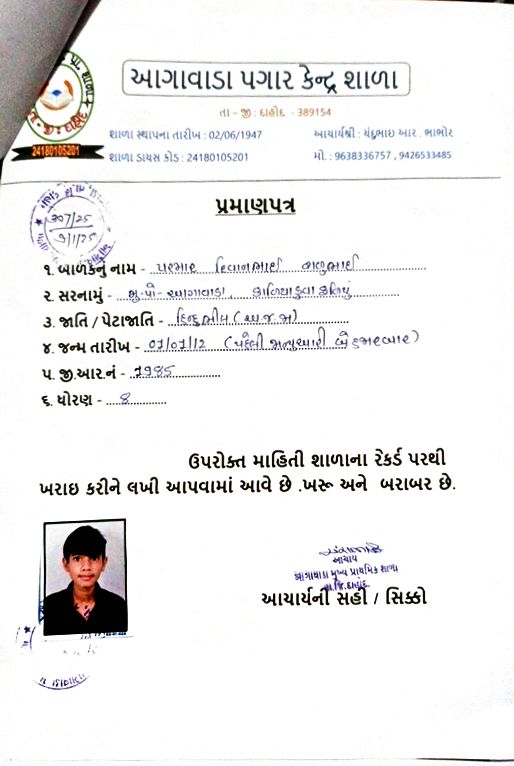 આગાવાડા પગાર કેન્દ્ર શાળા
તા - જી : દાહોદ - 389154
શાળા સ્થાપના તારીખ : 02/06/1947
આચાર્યશ્રી : ચંદુભાઇ આર . ભાભોર
શાળા ડાયસ કોડ : 24180105201
મો. : 9638336757 , 9426533485
તા - જી : દાહોદ
24180105201
પ્રમાણપત્ર
207/25
૧. બાળકનું નામ - પરમાર દિવાનભાઈ બાબુભાઈ
૨. સરનામું - મુ.પો- આગાવાડા ,
૩. જાતિ / પેટાજાતિ - હિન્દુ ભીલ (અ.જ.જા)
૪. જન્મ તારીખ - 01/01/12 (પહેલી જાન્યુઆરી બે હજાર બાર)
૫. જી.આર.નં - 7985
૬. ધોરણ - 8
ઉપરોક્ત માહિતી શાળાના રેકર્ડ પરથી
ખરાઇ કરીને લખી આપવામાં આવે છે .ખરૂ અને બરાબર છે.
આચાર્ય
આગાવાડા મુખ્ય પ્રાથમિક શાળા
તા.જિ.દાહોદ
આચાર્યની સહી / સિક્કો